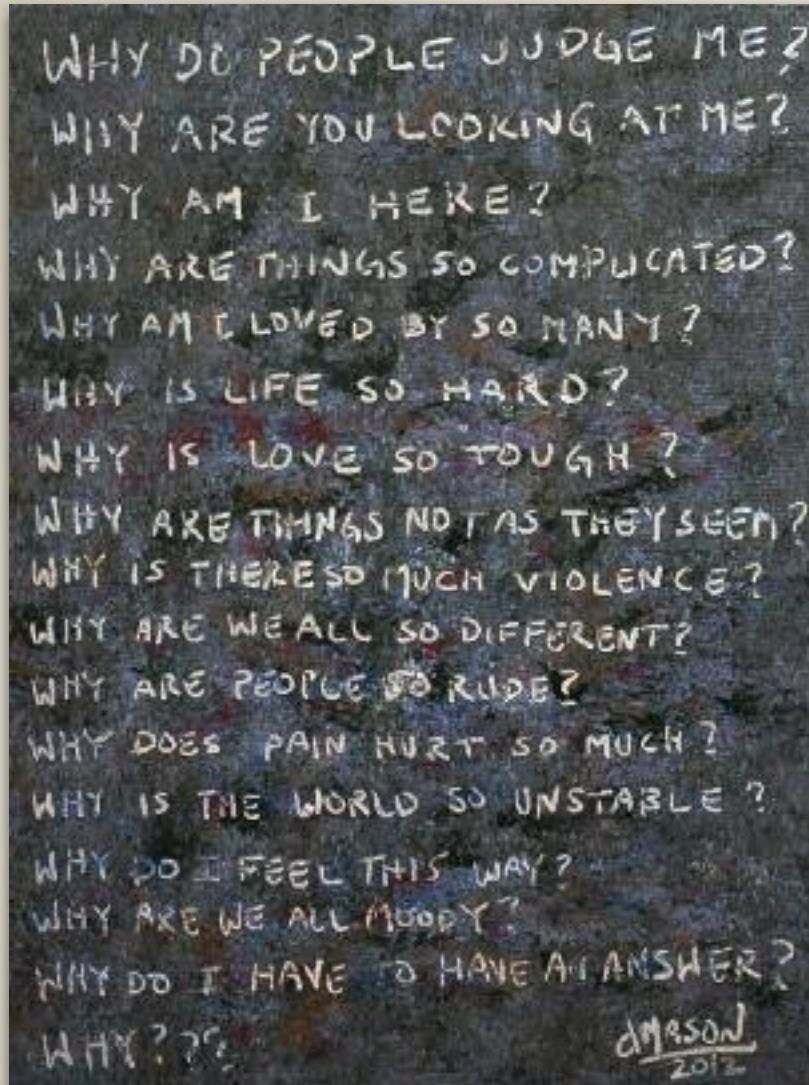 WHY DO PEOPLE JUDGE ME?
WHY ARE YOU LOOKING AT ME?
WHY AM I HERE?
WHY ARE THINGS SO COMPLICATED?
WHY AM I LOVED BY SO MANY?
WHY IS LIFE SO HARD?
WHY IS LOVE SO TOUGH?
WHY ARE THINGS NOT AS THEY SEEM?
WHY IS THERE SO MUCH VIOLENCE?
WHY ARE WE ALL SO DIFFERENT?
WHY ARE PEOPLE SO RUDE?
WHY DOES PAIN HURT SO MUCH?
WHY IS THE WORLD SO UNSTABLE?
WHY DO I FEEL THIS WAY?
WHY ARE WE ALL MOODY?
WHY DO I HAVE TO HAVE AN ANSWER?
WHY???
dMASON
2012